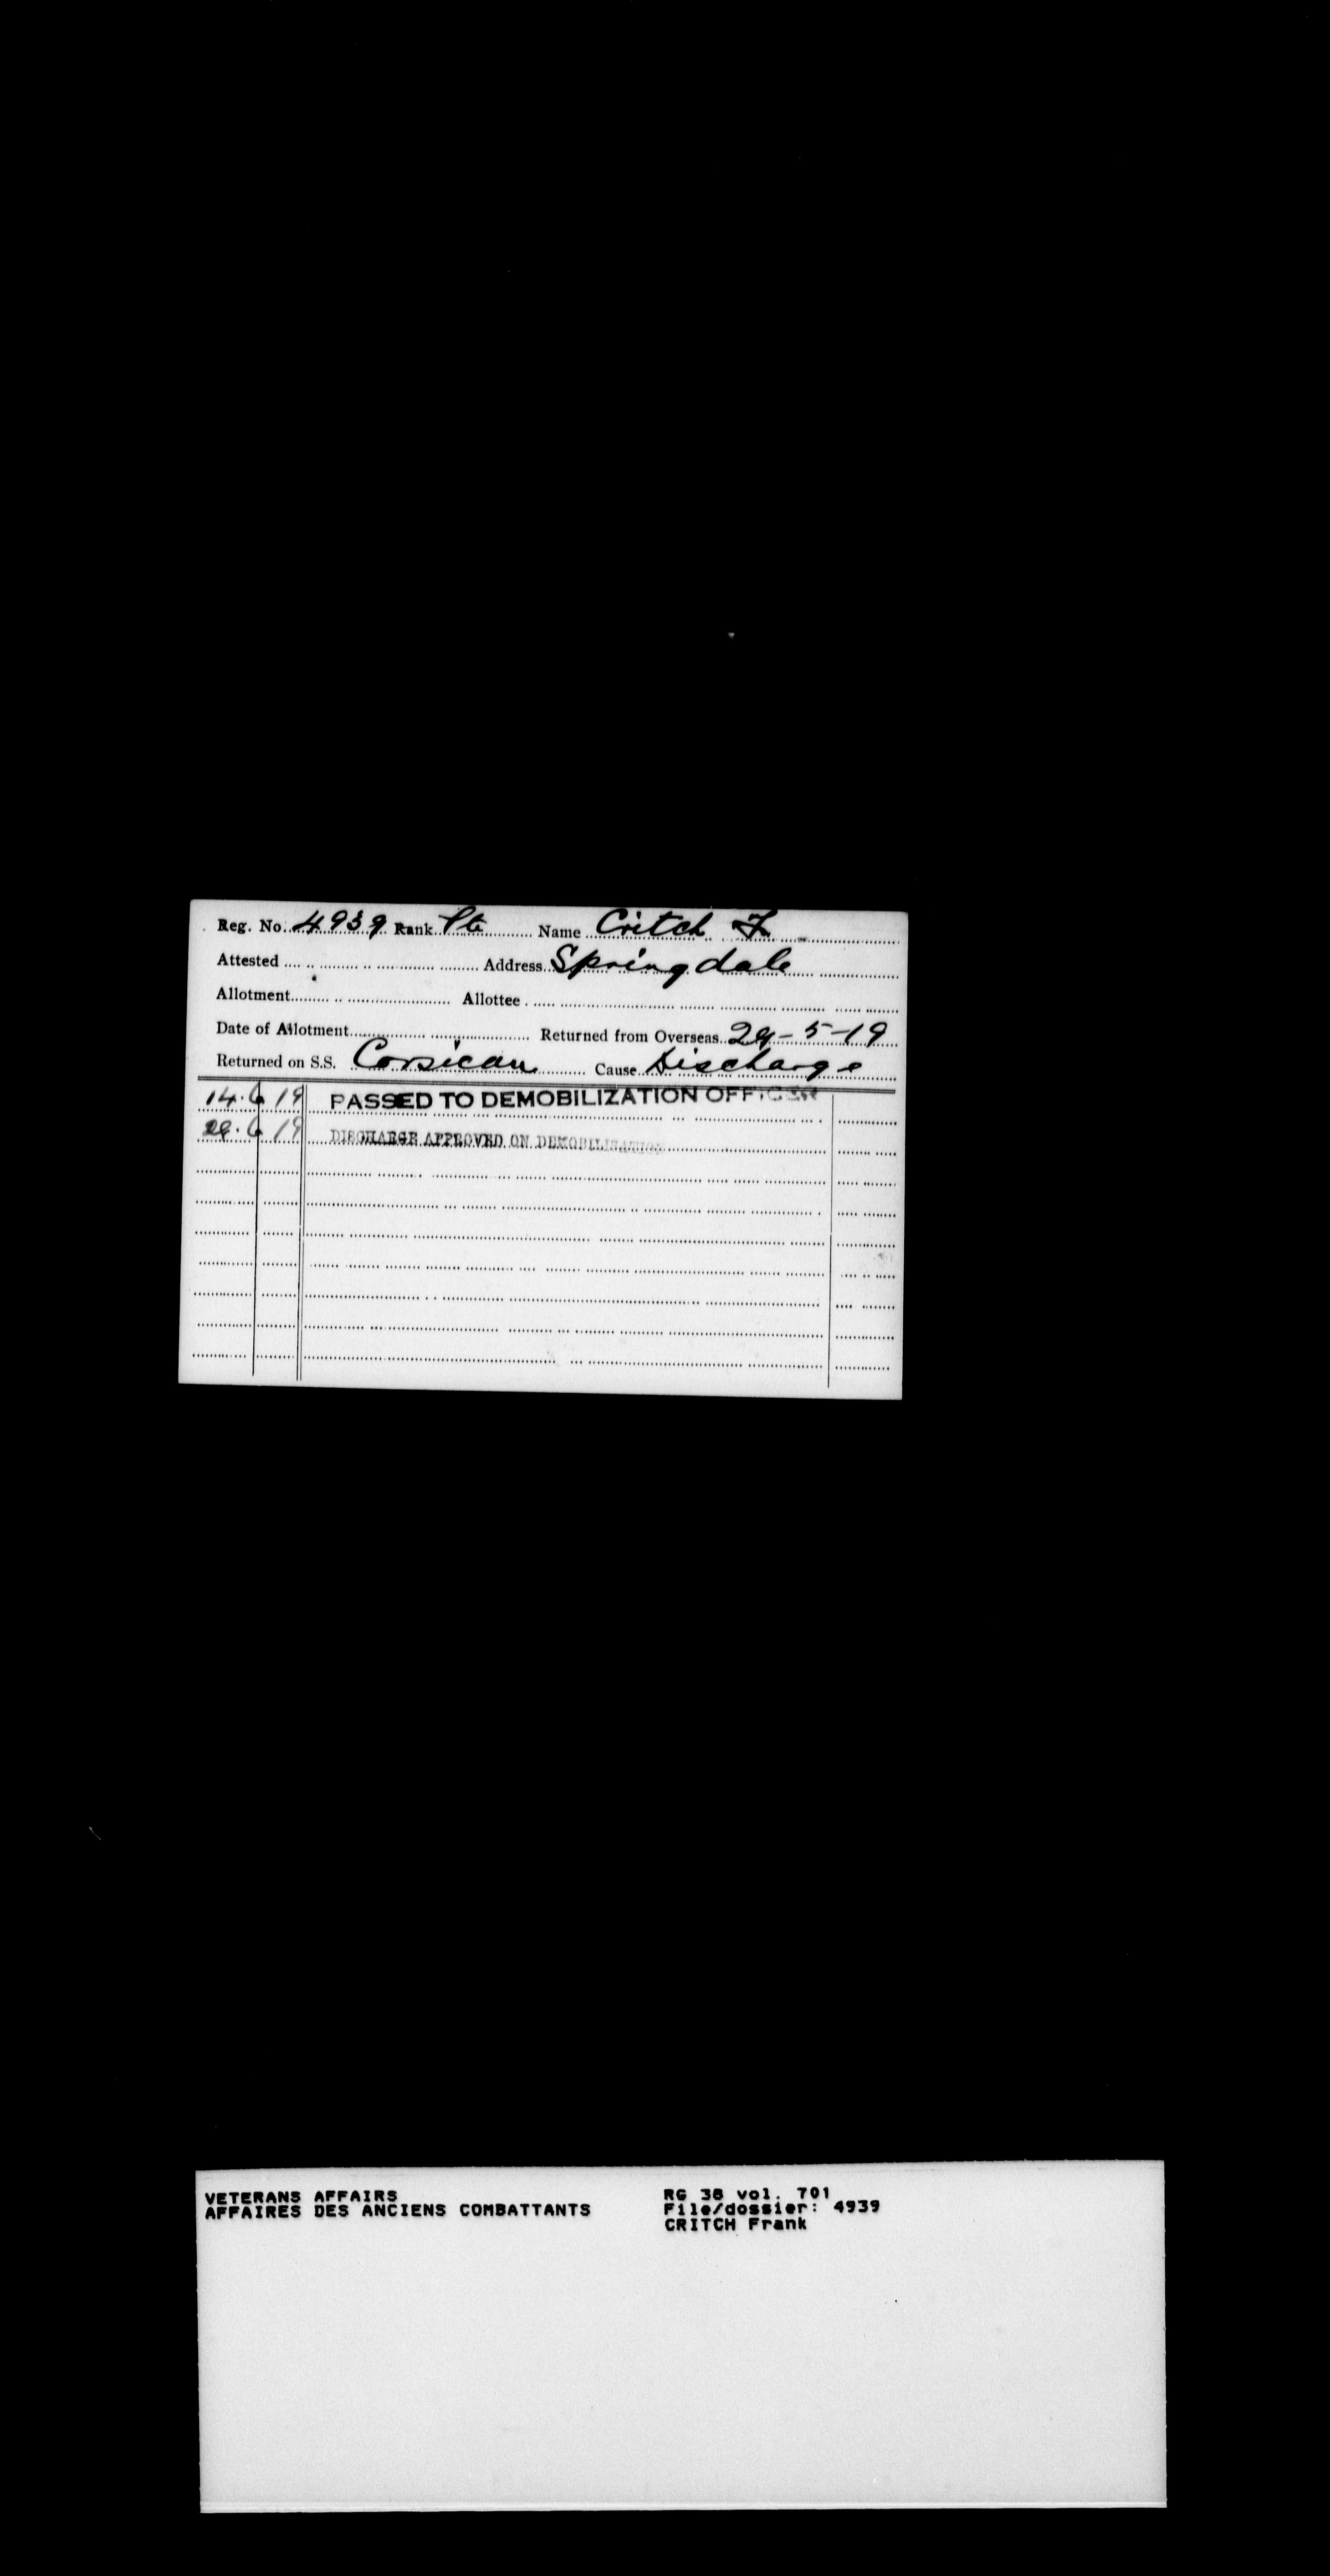 Reg. No. 4939 Rank Pte Name Critch F
Attested Address Springdale
Allotment Allottee
Date of Allotment Returned from Overseas 29-5-19
Returned on S.S. Corsican Cause Discharge
14 6 19 PASSED TO DEMOBILIZATION OFFICER
6 19 DISCHARGE APPROVED ON DEMOBILISATION
VETERANS AFFAIRS RG 38 vol. 701
AFFAIRES DES ANCIENS COMBATTANTS File/dossier: 4939
CRITCH Frank